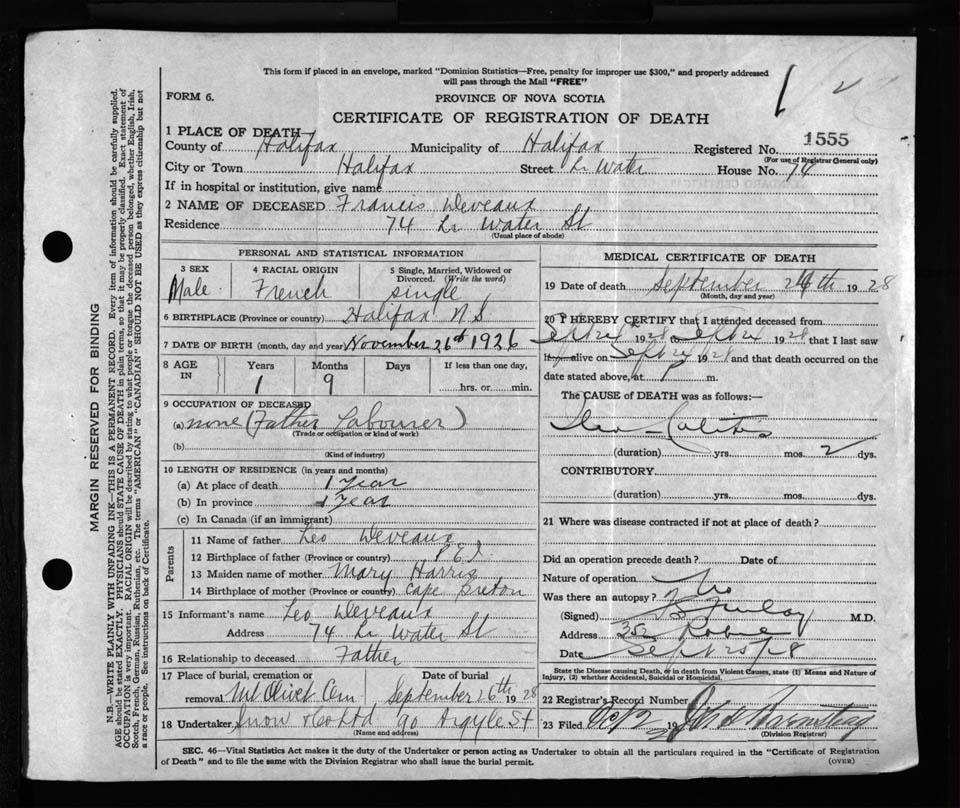 This form if placed in an envelope, marked "Dominion Statistics—Free, penalty for improper use $300," and properly addressed
will pass through the Mail "FREE"
FORM 6.
PROVINCE OF NOVA SCOTIA
CERTIFICATE OF REGISTRATION OF DEATH
1 PLACE OF DEATH—
County of Halifax Municipality of Halifax Registered No. 1555
(For use of Registrar General only)
City or Town Halifax Street Lr Water House No. 74
If in hospital or institution, give name
2 NAME OF DECEASED Francis Deveaux
Residence 74 Lr Water St
(Usual place of abode)
PERSONAL AND STATISTICAL INFORMATION
3 SEX 4 RACIAL ORIGIN 5 Single, Married, Widowed or Divorced. (Write the word)
Male French single
6 BIRTHPLACE (Province or country) Halifax N.S
7 DATE OF BIRTH (month, day and year) November 26th 1926
8 AGE IN Years Months Days If less than one day,
1 9 hrs. or min.
9 OCCUPATION OF DECEASED
(a) none (Father Labourer)
(Trade or occupation or kind of work)
(b)
(Kind of industry)
10 LENGTH OF RESIDENCE (in years and months)
(a) At place of death 1 year
(b) In province 1 year
(c) In Canada (if an immigrant)
Parents
11 Name of father Leo Deveaux
12 Birthplace of father (Province or country) P.E.I.
13 Maiden name of mother Mary Harris
14 Birthplace of mother (Province or country) Cape Breton
15 Informant's name Leo Deveaux
Address 74 Lr Water St
16 Relationship to deceased Father
17 Place of burial, cremation or Date of burial
removal Mt Olivet Cem September 26th 1928
18 Undertaker Snow & Co Ltd 90 Argyle St
(Name and address)
MEDICAL CERTIFICATE OF DEATH
19 Date of death September 24th 1928
(Month, day and year)
20 I HEREBY CERTIFY that I attended deceased from
Sept 1928 to Sept 24 1928 that I last saw
alive on Sept 24 192 and that death occurred on the
date stated above, at P m.
The CAUSE of DEATH was as follows:—
Ileo-Colitis
(duration) yrs. mos. 2 dys.
CONTRIBUTORY
(duration) yrs. mos. dys.
21 Where was disease contracted if not at place of death?
Did an operation precede death? Date of
Nature of operation
Was there an autopsy? No
(Signed) M.D.
Address Robie
Date Sept 25 28
State the Disease causing Death, or in death from Violent Causes, state (1) Means and Nature of
Injury, (2) whether Accidental, Suicidal or Homicidal.
22 Registrar's Record Number
23 Filed Oct 2 19
(Division Registrar)
SEC. 46—Vital Statistics Act makes it the duty of the Undertaker or person acting as Undertaker to obtain all the particulars required in the "Certificate of Registration
of Death" and to file the same with the Division Registrar who shall issue the burial permit.
(OVER)
MARGIN RESERVED FOR BINDING
N.B.—WRITE PLAINLY WITH UNFADING INK—THIS IS A PERMANENT RECORD. Every item of information should be carefully supplied.
AGE should be stated EXACTLY. PHYSICIANS should STATE CAUSE OF DEATH in plain terms, so that it may be properly classified. Exact statement of
OCCUPATION is very important. RACIAL ORIGIN will be described by stating to what people or tongue the deceased person belonged, whether English, Irish,
Scotch, French, German, Russian, Ruthenian, etc. The terms "AMERICAN" or "CANADIAN" SHOULD NOT BE USED as they express citizenship but not
a race or people. See instructions on back of Certificate.